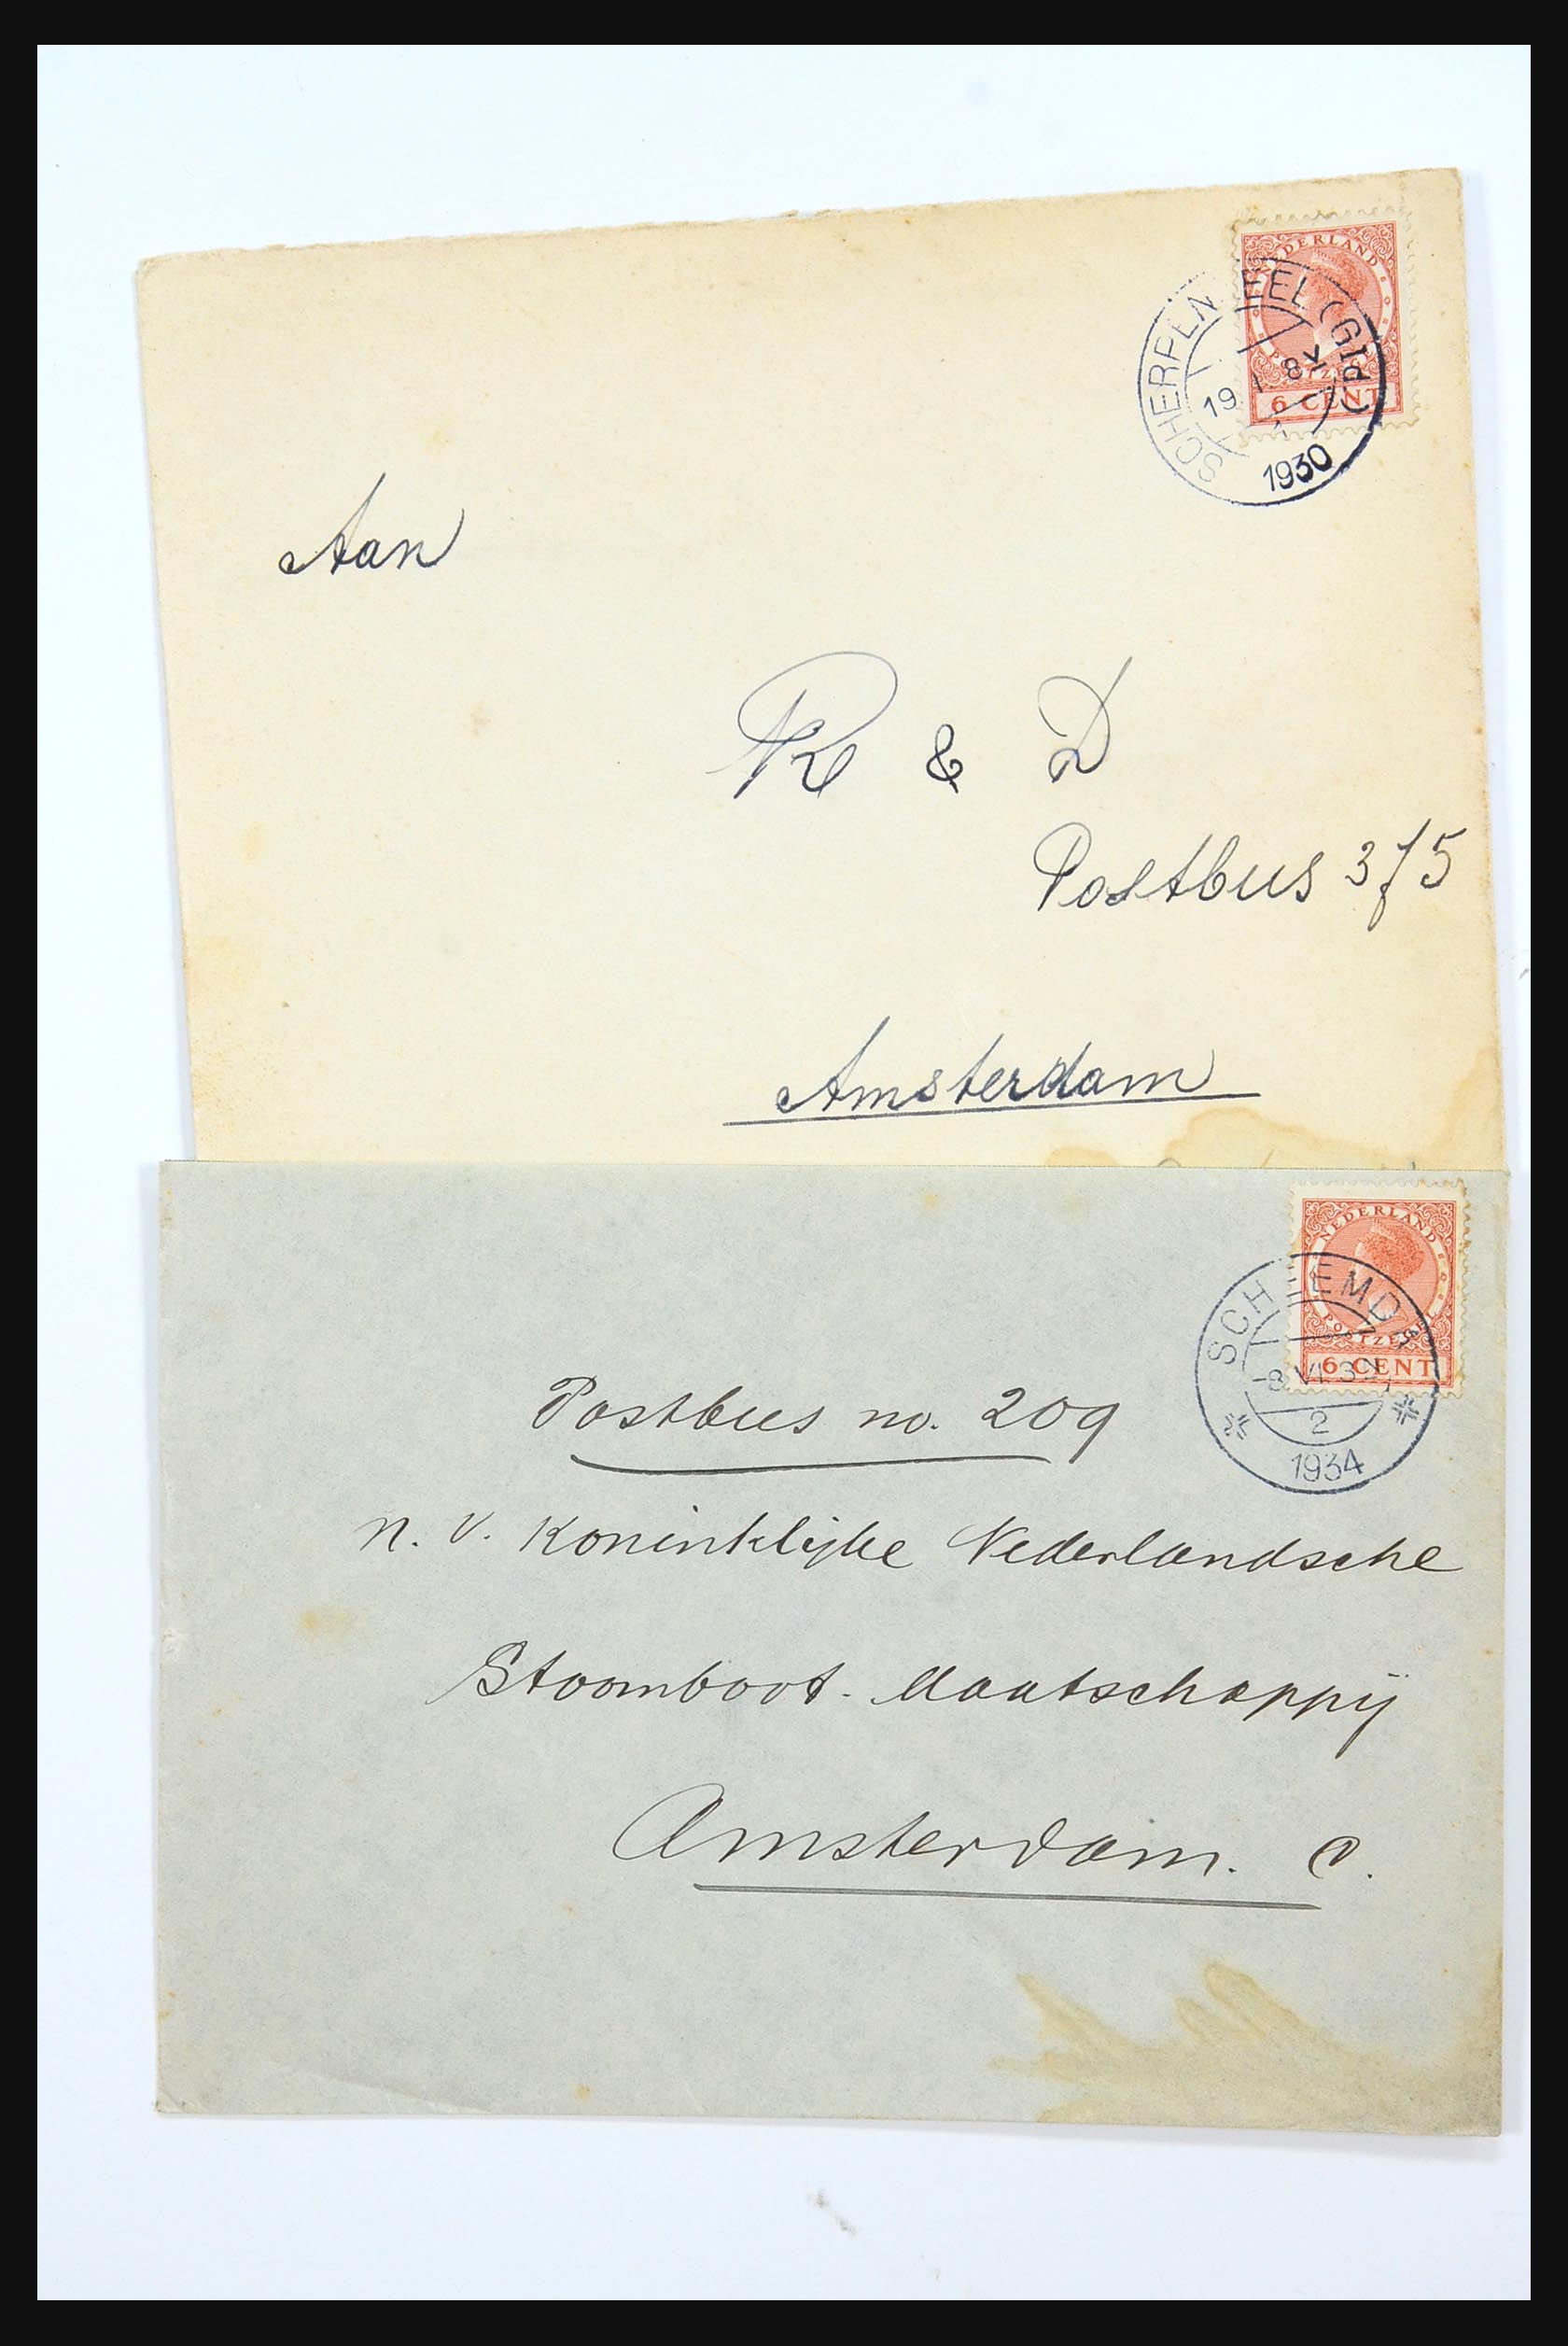 NEDERLAND
POSTZEGEL
6 CENT
19 I 8V
1
1930
Aan
R & D
Postbus 375
Amsterdam
NEDERLAND
POSTZEGEL
6 CENT
-8 VI 3N
2
1934
Postbus no. 209
n. v. Koninklijke Nederlandsche
Stoomboot - Maatschappij
Amsterdam. C.